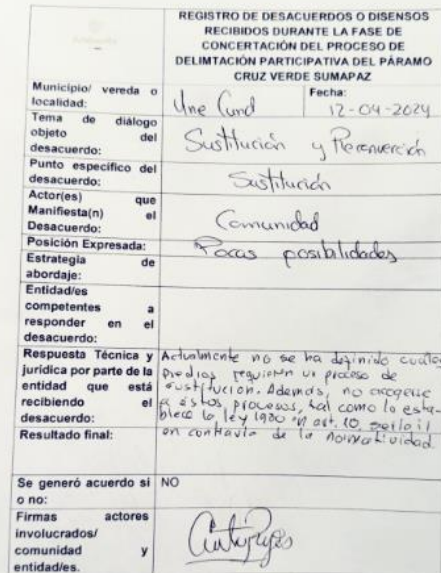 REGISTRO DE DESACUERDOS O DISENSOS
RECIBIDOS DURANTE LA FASE DE
CONCERTACIÓN DEL PROCESO DE
DELIMTACIÓN PARTICIPATIVA DEL PÁRAMO
CRUZ VERDE SUMAPAZ
Municipio/ vereda o
localidad:
Une Cund
Fecha:
12-04-2024
Tema de diálogo
objeto del
desacuerdo:
Sustitución y Reconversión
Punto especifico del
desacuerdo:
Sustitución
Actor(es) que
Manifiesta(n) el
Desacuerdo:
Comunidad
Posición Expresada:
Pocas posibilidades
Estrategia de
abordaje:
Entidad/es
competentes a
responder en el
desacuerdo:
Respuesta Técnica y
jurídica por parte de la
entidad que está
recibiendo el
desacuerdo:
Actualmente no se ha definido cuales
predios requieren un proceso de
sustitución. Además, no acogerse
a éstos procesos, tal como lo esta-
blece la ley 1930 art. 10, sería ir
en contravía de la normatividad.
Resultado final:
Se generó acuerdo si
o no:
NO
Firmas actores
involucrados/
comunidad y
entidad/es.